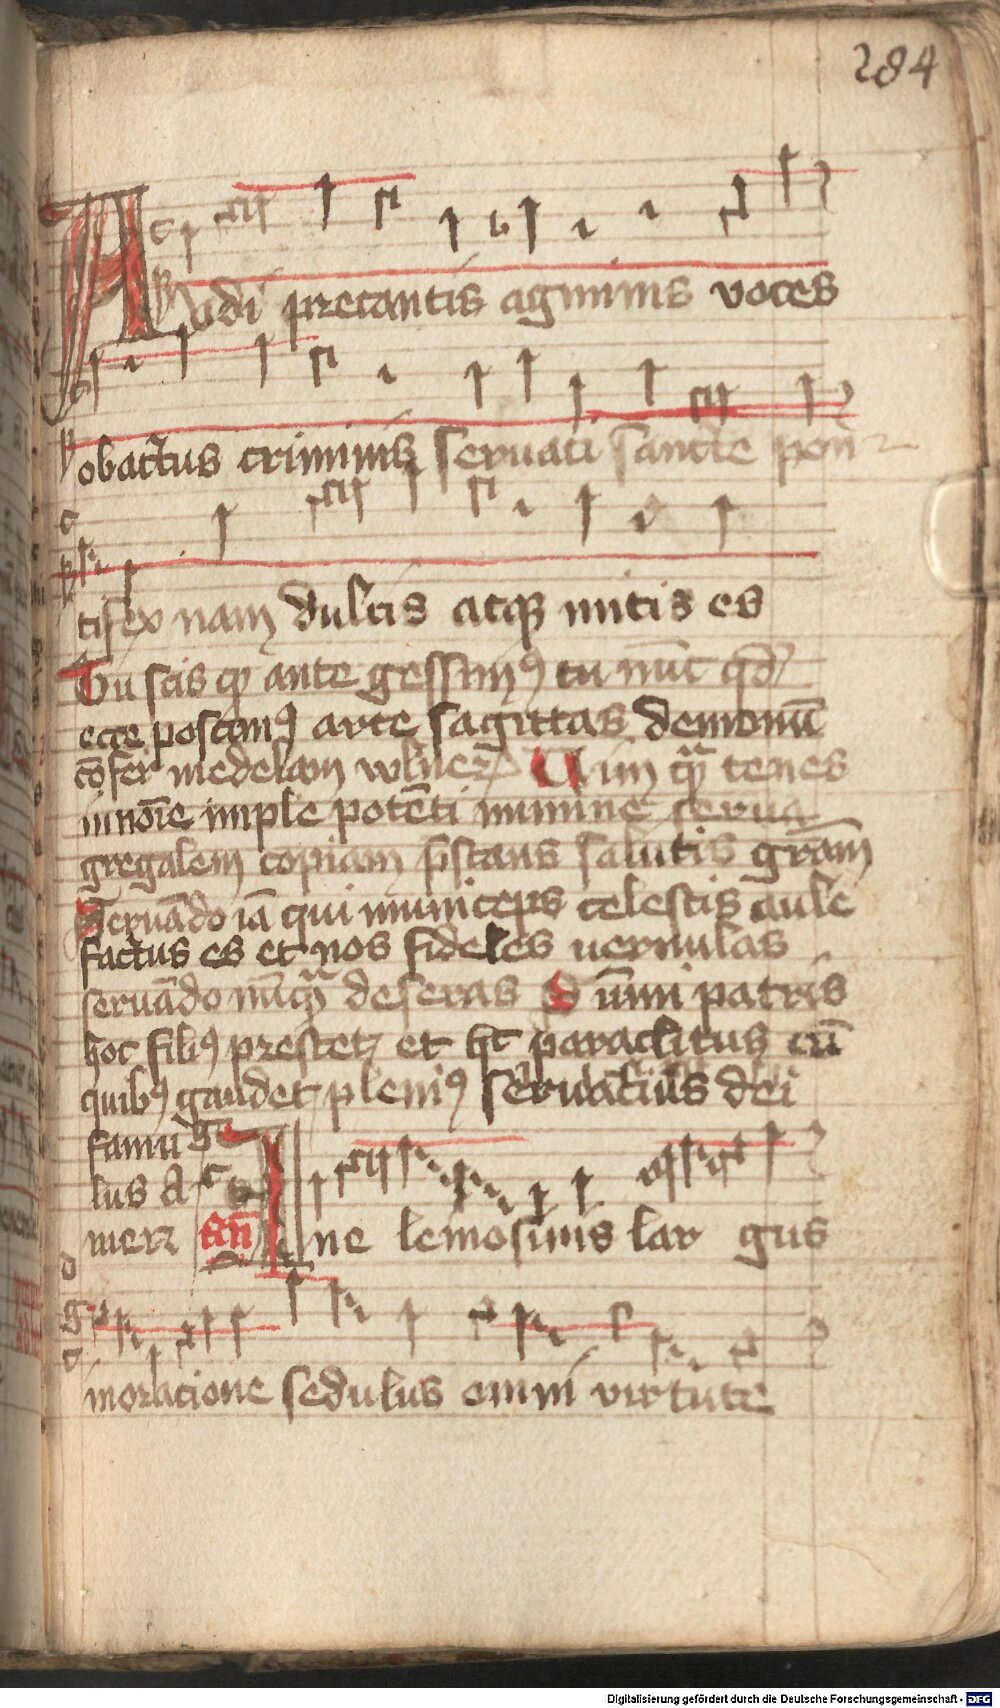 284
Audi precantis agminis voces
obactus criminis seruati sancte pon
tifex nam dulcis atqꝫ mitis es
Tu scis qꝫ ante gessimꝰ tu nūc qd
ecce poscimꝰ arte sagittas demonū
cōfer medelam vulnerꝝ Uim quā tenes
in noīe imple potēti numine serua
gregalem copiam p̄stans salutis grām
Seruādo iā qui municeps celestis aule
factus es et nos fideles uernulas
seruādo nūqᷓ deseras S ummi patris
hoc filiꝰ prestet et hͨ paraclitus cū
quibꝰ gaudet pleniꝰ seruacius dei
famu
lus A
merꝝ an̄ In elemosinis lar gus
moracione sedulus omni virtute
Digitalisierung gefördert durch die Deutsche Forschungsgemeinschaft - DFG